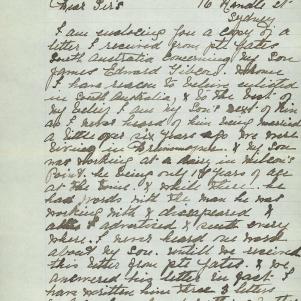 Dear Sirs 16 Hendle St
Sydney
I am enclosing you a copy of a
letter I received from Pte Yates
South Australia concerning my Son
James Edward Gibson. Whome
I have reason to believe enlisted
in South Australia, & to the best of
my belief I am my Son's Next of Kin
as I never heard of him being married
a little over six years ago we were
living in & my Son
was working at a dairy in
Point. he being only 18 years of age
at the time. & while there he
had words with the man he was
working with & disapeared &
altho I advertised & sent every
where. I never heard one word
about my Son. untill we received
this letter from Pte Yates, & we
answered his letter in fact. I
have written him three 3 letters